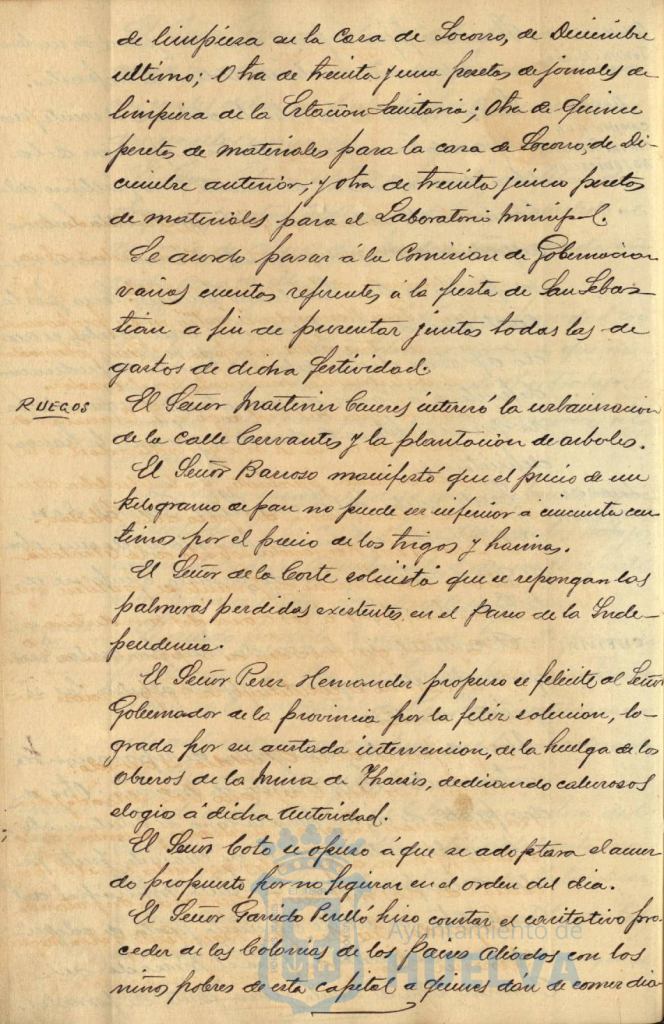 de limpieza en la Casa de Socorro, de Diciembre
ultimo; Otra de treinta y una pesetas de jornales de
limpieza de la Estación Sanitaria; Otra de Quince
pesetas de materiales para la casa de Socorro, de Di-
ciembre anterior; y otra de treinta y cinco pesetas
de materiales para el Laboratorio Municipal.
Se acordo pasar á la Comision de Gobernacion
varias cuentas referentes á la fiesta de San Sebas-
tian a fin de presentar juntas todas las de
gastos de dicha festividad.
RUEGOS
El Señor Martinez Caceres interesó la urbanizacion
de la calle Cervantes y la plantacion de arboles.
El Señor Barroso manifestó que el precio de un
kilogramo de pan no puede ser inferior a cincuenta cen-
timos por el precio de los trigos y harinas.
El Señor de la Corte solicita que se repongan las
palmeras perdidas existentes en el Paseo de la Inde-
pendencia.
El Señor Perez Hernandez propuso se felicite al Señor
Gobernador de la provincia por la feliz solucion, lo-
grada por su acertada intervencion, de la huelga de los
obreros de la mina de Tharsis, dedicando calurosos
elogios á dicha autoridad.
El Señor Coto se opuso á que se adoptara el acuer-
do propuesto por no figurar en el orden del dia.
El Señor Garrido Perelló hizo constar el caritativo pro-
ceder de las Colonias de los Paises Aliados con los
niños pobres de esta capital a quienes dán de comer dia-
Ayuntamiento de
HUELVA